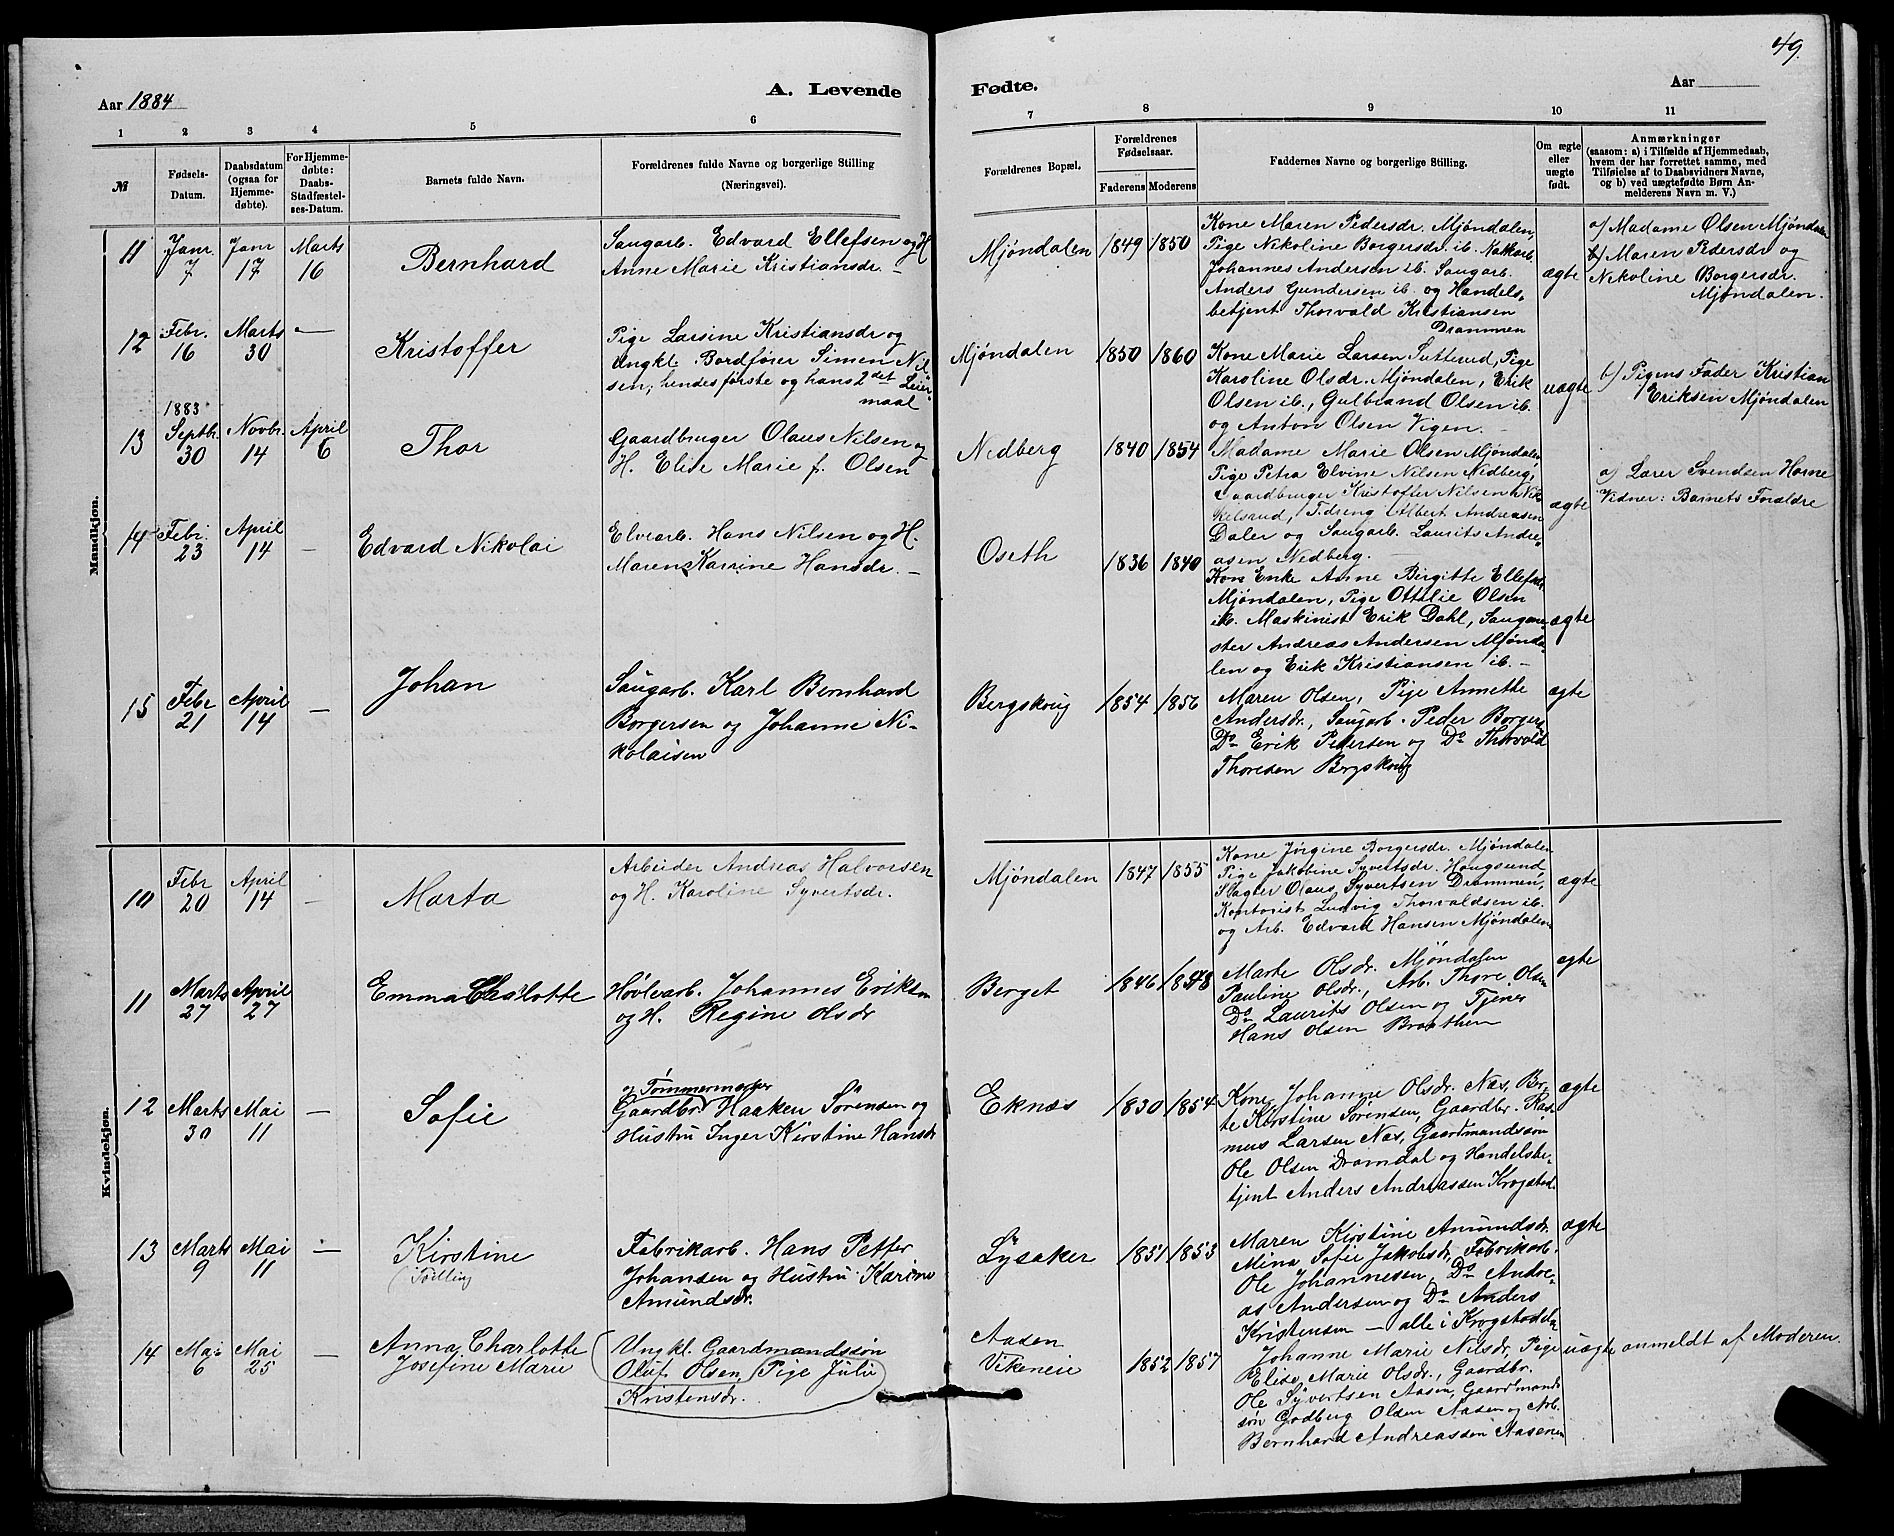 49.
Aar 1884
A. Levende
Fødte.
Aar
1 2 3 4 5 6 7 8 9 10 11
№
Fødsels-Datum.
Daabsdatum (ogsaa for Hjemme-døbte).
For Hjemme-døbte: Daabs-Stadfæstel-ses-Datum.
Barnets fulde Navn.
Forældrenes fulde Navne og borgerlige Stilling (Næringsvei).
Forældrenes Bopæl.
Forældrenes Fødselsaar.
Faderens Moderens
Faddernes Navne og borgerlige Stilling.
Om ægte eller uægte født.
Anmærkninger
(saasom: a) i Tilfælde af Hjemmedaab, hvem der har forrettet samme, med Tilføielse af to Daabsvidners Navne, og b) ved uægtefødte Børn An-melderens Navn m. V.)
Mandkjøn.
11 Janr. 7 Janr 17 Marts 16 Bernhard
Saugarb. Edvard Ellefsen og H.
Anne Marie Kristiansdr. –
Mjøndalen 1849 1850
Kone Maren Pedersdr. Mjøndalen,
Pige Nikoline Borgersdr. ib.
Johannes Andersen ib. Saugarb.
Anders Gundersen ib. og Handels-
betjent Thorvald Kristiansen
Drammen
ægte
a) Madame Olsen Mjøndalen
b) Maren Pedersdr og
Nikoline Borgersdr.
Mjøndalen.
12 Febr. 16 Marts 30 — Kristoffer
Pige Larsine Kristiansdr og
Ungkl. Bordfører Simen Nil-
sen, hendes første og hans 2det Leier-
maal
Mjøndalen 1850 1860
Kone Marie Larsen Sutterud, Pige
Karoline Olsdr. Mjøndalen, Erik
Olsen ib., Gulbrand Olsen ib.
og Anton Olsen Vigen. –
uægte
b) Pigens Fader Kristian
Eriksen Mjøndalen
13 1883 Septbr. 30 Novbr. 14 April 6 Thor
Gaardbruger Olaus Nilsen og
H. Elise Marie f. Olsen
Nedberg 1840 1854
Madame Marie Olsen Mjøndalen
Pige Petra Elvine Nilsen Nedberg,
Gaardbruger Kristoffer Nilsen Nik-
kelsrud, Tidreng Albert Andreasen
Daler og Saugarb. Laurits Andre-
asen Nedberg. –
ægte
a) Lærer Svendsen Horne
Vidner: Barnets Forældre
14 Febr. 23 April 14 – Edvard Nikolai
Elvearb. Hans Nilsen og H.
Maren Karine Hansdr. –
Oseth 1836 1840
Kone Enke Anne Birgitte Ellefsdr.
Mjøndalen, Pige Ottilie Olsen
ib. Maskinist Erik Dahl, Saugme-
ster Andreas Andersen Mjønda-
len og Erik Kristiansen ib. –
ægte
15 Febr 21 April 14 – Johan
Saugarb. Karl Bernhard
Borgersen og Johanne Ni-
kolaisen
Bergskoug 1854 1856
Maren Olsen, Pige Annette
Andersdr., Saugarb. Peder Borgers
Do Erik Pedersen og Do Thorvald
Thoresen Bergskoug
ægte
Kvindekjøn.
10 Febr 20 April 14 – Marta
Arbeider Andreas Halvorsen
og H. Karoline Syvertsdr.
Mjøndalen 1847 1855
Kone Jörgine Borgersdr. Mjøndalen
Pige Jakobine Syvertsdr. Hougsund,
Slagter Olaus Syvertsen Drammen,
Kontorist Ludvig Thorvaldsen ib.
og Arb. Edvard Hansen Mjøndalen
ægte
11 Marts 27 April 27 Emma Charlotte
Høvlearb. Johannes Eriksen
og H. Regine Olsdr
Berget 1846 1848
Marte Olsdr. Mjøndalen
Pauline Olsdr., Arb. Thore Olsen
Do Laurits Olsen og Tjener
Hans Olsen Braathen
ægte
12 Marts 30 Mai 11 — Sofie
og Tømmermærker
Gaardbr. Haaken Sørensen og
Hustru Inger Kirstine Hansdr
Eknæs 1830 1854
Kone Johanne Olsdr. Næs, Ber-
te Kirstine Sørensen, Gaardbr. Ras-
mus Larsen Næs, Gaardmandssøn
Ole Olsen Dramdal og Handelsbe-
tjent Anders Andreassen Krogstad.
ægte
13 Marts 9 Mai 11 — Kirstine
(Tvilling
Fabrikarb. Hans Petter
Johansen og Hustru Karine
Amundsdr.
Lysaker 1851 1853
Maren Kirstine Amundsdr.
Mina Sofie Jakobsdr, Fabrikarb.
Ole Johannesen, Do Andre-
as Andersen og Do Anders
Kristensen — alle i Krogstadelva
ægte
14 Mai 6 Mai 25 — Anna Charlotte
Josefine Marie
Ungkl. Gaardmandssøn
Oluf Olsen, Pige Julie
Kristensdr.
Aasen
Vikeneie
1852 1857
Johanne Marie Nilsdr, Pige
Elise Marie Olsdr., Gaardbr.
Ole Syvertsen Aasen, Gaardmand-
søn Godberg Olsen Aasen og Arb.
Bernhard Andreassen Aasenen
uægte
anmeldt af Moderen.